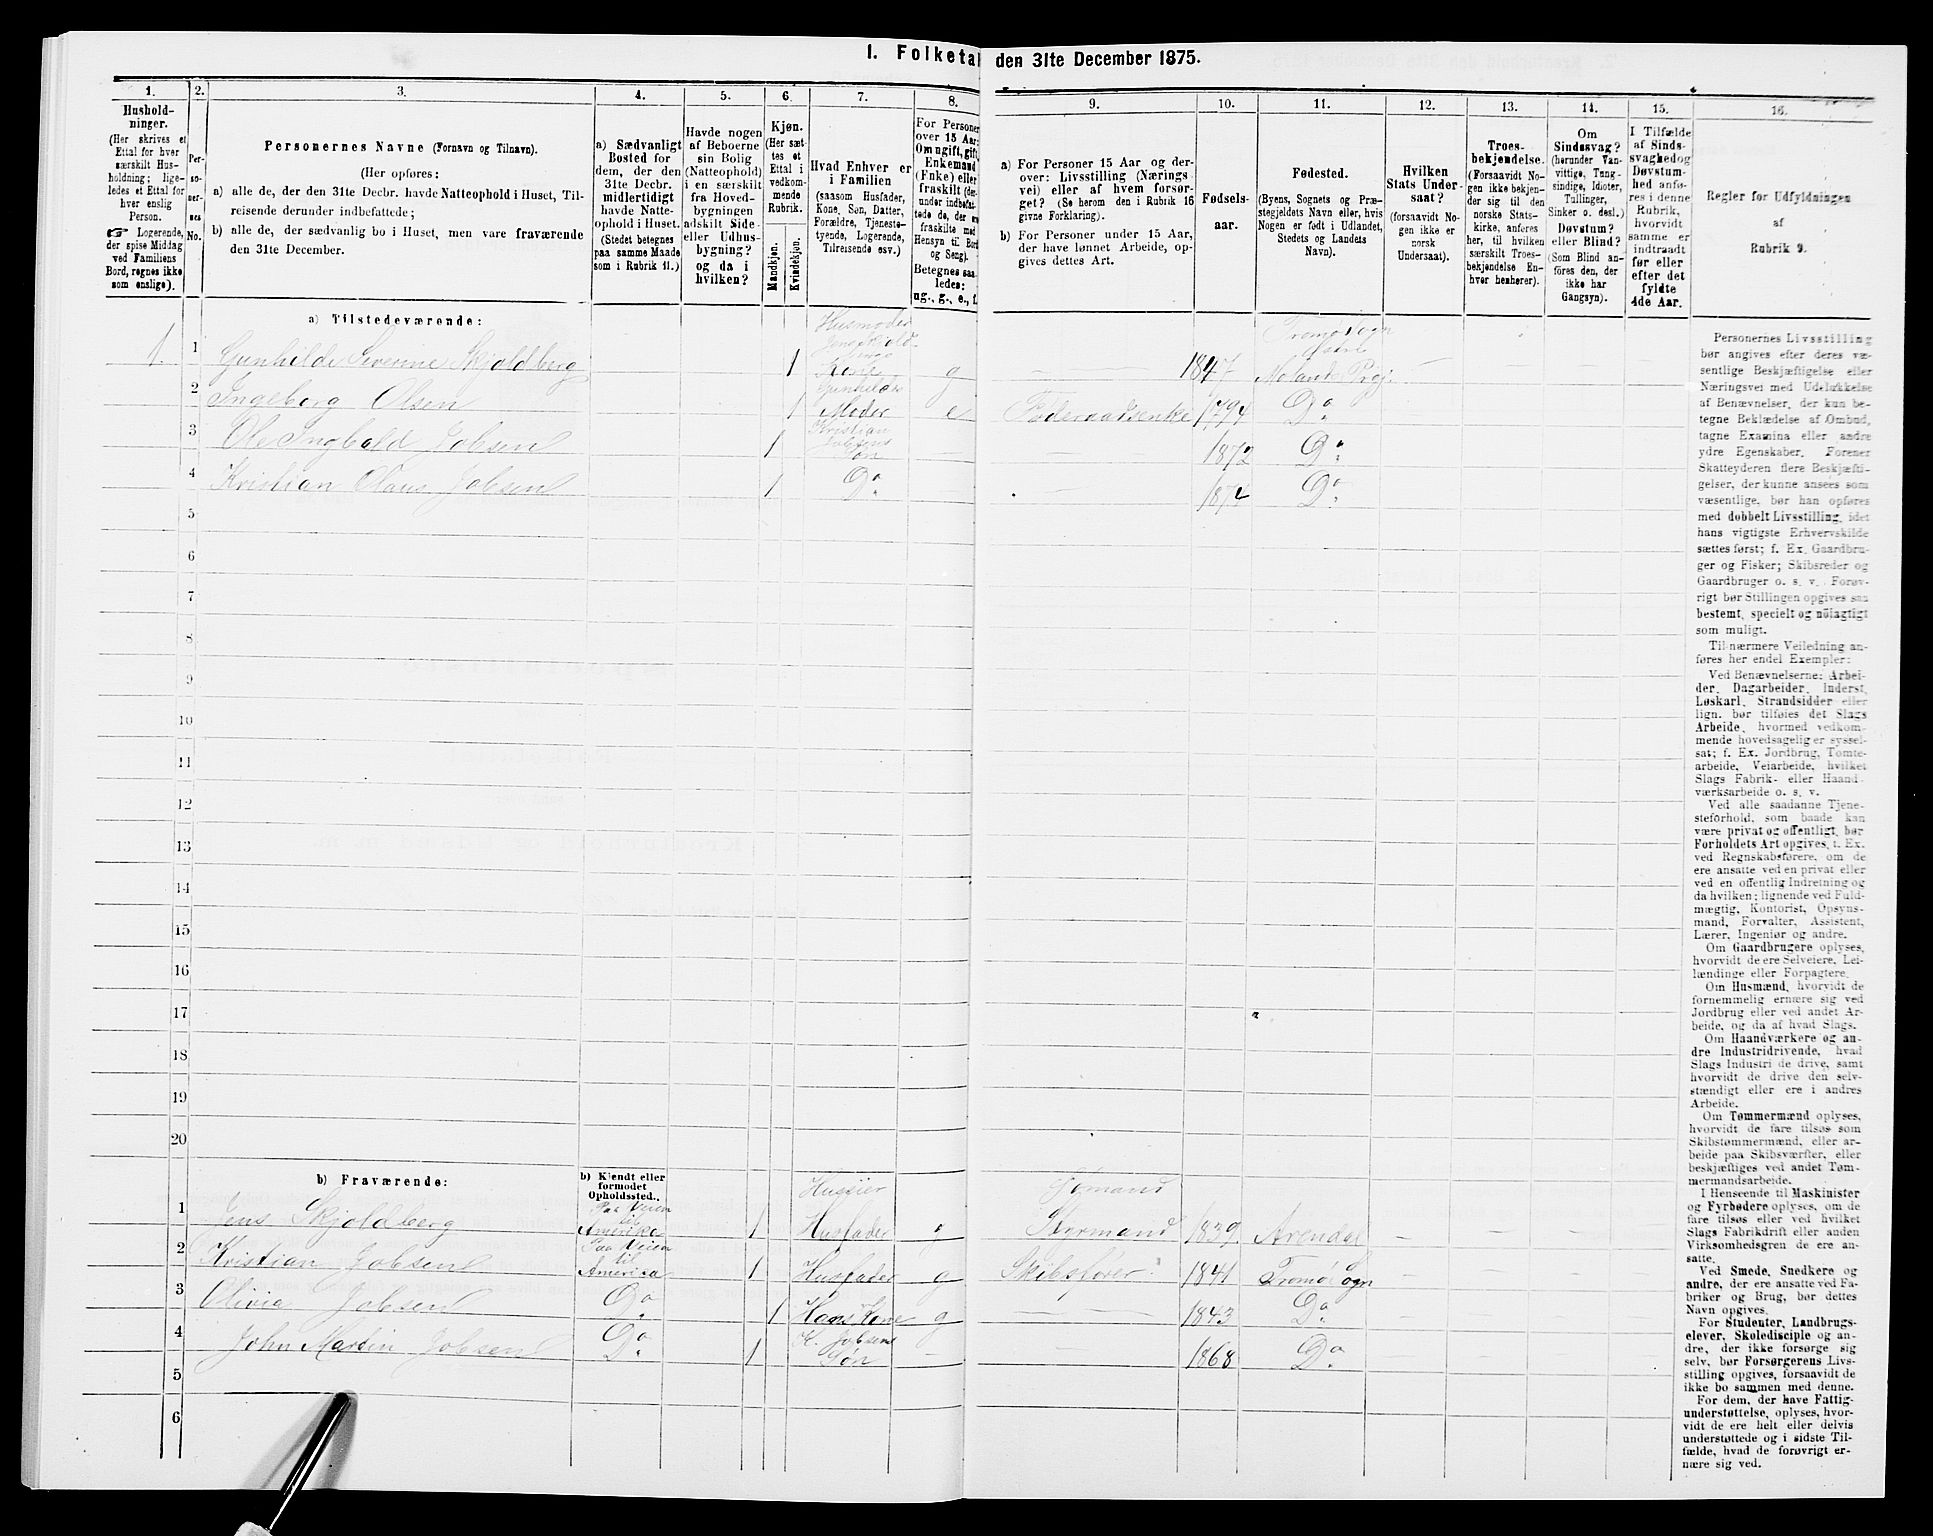 I. Folketal den 31te December 1875.
1.
Hushold-
ninger.
(Her skrives et
Ettal for hver
særskilt Hus-
holdning; lige-
ledes et Ettal for
hver enslig
Person.
☞ Logerende,
der spise Middag
ved Familiens
Bord, regnes ikke
som enslige).
2.
Per-
so-
ner-
nes
No.
3.
Personernes Navne (Fornavn og Tilnavn).
(Her opføres:
a) alle de, der den 31te Decbr. havde Natteophold i Huset, Til-
reisende derunder indbefattede;
b) alle de, der sædvanlig bo i Huset, men vare fraværende
den 31te December.
4.
a) Sædvanligt
Bosted for
dem, der den
31te Decbr.
midlertidigt
havde Natte-
ophold i Huset.
(Stedet betegnes
paa samme Maade
som i Rubrik 11.)
5.
Havde nogen
af Beboerne
sin Bolig
(Natteophold)
i en særskilt
fra Hoved-
bygningen
adskilt Side-
eller Udhus-
bygning?
og da i
hvilken?
6.
Kjøn.
(Her sæt-
tes et
Ettal i
vedkom-
mende
Rubrik.
Mandkjøn.
Kvindekjøn.
7.
Hvad Enhver er
i Familien
(saasom Husfader,
Kone, Søn, Datter,
Forældre, Tjeneste-
tyende, Logerende,
Tilreisende osv.)
8.
For Personer
over 15 Aar:
Om ugift, gift,
Enkemand
(Enke) eller
fraskilt (der-
under indbefat-
tede de, der ere
fraskilte med
Hensyn til Bord
og Seng).
Betegnes saa-
ledes:
ug., g., e., f.
9.
a) For Personer 15 Aar og der-
over: Livsstilling (Nærings-
vei) eller af hvem forsør-
get? (Se herom den i Rubrik 16
givne Forklaring).
b) For Personer under 15 Aar,
der have lønnet Arbeide, op-
gives dettes Art.
10.
Fødsels-
aar.
11.
Fødested.
(Byens, Sognets og Præ-
stegjeldets Navn eller, hvis
Nogen er født i Udlandet,
Stedets og Landets
Navn).
12.
Hvilken
Stats Under-
saat?
(forsaavidt No-
gen ikke er
norsk
Undersaat).
13.
Troes-
bekjendelse.
(Forsaavidt No-
gen ikke bekjen-
der sig til den
norske Stats-
kirke, anføres
her, til hvilken
særskilt Troes-
bekjendelse En-
hver henhører).
14.
Om
Sindssvag?
(herunder Van-
vittige, Tung-
sindige, Idioter,
Tullinger,
Sinker o. desl.)
Døvstum?
eller Blind?
(Som Blind an-
føres den, der
ikke har
Gangsyn).
15.
I Tilfælde
af Sinds-
svaghed og
Døvstum-
hed anfø-
res i denne
Rubrik,
hvorvidt
samme er
indtraadt
før eller
efter det
fyldte
4de Aar.
16.
Regler for Udfyldningen
af
Rubrik 9.
a) Tilstedeværende:
1. 1 Gunhilde Severine Skjoldberg 1 Husmoder Jens Skjold- bergs Kone g — 1847 Tromø Sogn Østre Molands Prgj. — — — —
2 Ingeborg Olsen 1 Gunhildes Moder e Føderaadsenke 1794 Do
3 Ole Ingbald Jobsen 1 Kristian Jobsens Søn — — 1872 Do
4 Kristian Olaus Jobsen 1 Do — — 1874 Do
5
6
7
8
9
10
11
12
13
14
15
16
17
18
19
20
b) Fraværende:
b) Kjendt eller
formodet
Opholdssted.
1 Jens Skjoldberg Paa Veien til Amerika 1 Huseier Husfader g Sømand Styrmand 1839 Arendal — — — —
2 Kristian Jobsen Paa Veien til Amerika 1 Husfader g Skibsfører 1841 Tromø Sogn — — — —
3 Olivia Jobsen Do 1 Hans Kone g — 1843 Do — — — —
4 John Martin Jobsen Do 1 K. Jobsens Søn — — 1868 Do — — — —
5
6
Personernes Livsstilling
bør angives efter deres væ-
sentlige Beskjæftigelse eller
Næringsvei med Udelukkelse
af Benævnelser, der kun be-
tegne Beklædelse af Ombud,
tagne Examina eller andre
ydre Egenskaber. Forener
Skatteyderen flere Beskjæfti-
gelser, der kunne ansees som
væsentlige, bør han opføres
med dobbelt Livsstilling, idet
hans vigtigste Erhvervskilde
sættes først; f. Ex. Gaardbru-
ger og Fisker; Skibsreder og
Gaardbruger o. s. v. Forøv-
rigt bør Stillingen opgives saa
bestemt, specielt og nöiagtigt
som muligt.
Til nærmere Veiledning an-
føres her endel Exempler:
Ved Benævnelserne: Arbei-
der, Dagarbeider, Inderst,
Løskarl, Strandsidder eller
lign. bør tilføies det Slags
Arbeide, hvormed vedkom-
mende hovedsagelig er syssel-
sat; f. Ex. Jordbrug, Tomte-
arbeide, Veiarbeide, hvilket
Slags Fabrik- eller Haand-
værksarbeide o. s. v.
Ved alle saadanne Tjene-
steforhold, som baade kan
være privat og offentligt, bør
Forholdets Art opgives, f. Ex.
ved Regnskabsførere, om de
ere ansatte ved en privat eller
ved en offentlig Indretning og
da hvilken; lignende ved Fuld-
mægtig, Kontorist, Opsyns-
mand, Forvalter, Assistent,
Lærer, Ingeniør og andre.
Om Gaardbrugere oplyses,
hvorvidt de ere Selveiere, Lei-
lændinge eller Forpagtere.
Om Husmænd, hvorvidt de
fornemmelig ernære sig ved
Jordbrug eller ved andet Ar-
beide, og da af hvad Slags.
Om Haandværkere og an-
dre Industridrivende, hvad
Slags Industri de drive, samt
hvorvidt de drive den selv-
stændigt eller ere i andres
Arbeide.
Om Tømmermænd oplyses,
hvorvidt de fare tilsøs som
Skibstømmermænd, eller ar-
beide paa Skibsværfter, eller
beskjæftiges ved andet Tøm-
mermandsarbeide.
I Henseende til Maskinister
og Fyrbødere oplyses, om de
fare tilsøs eller ved hvilket
Slags Fabrikdrift eller anden
Virksomhedsgren de ere an-
satte.
Ved Smede, Snedkere og
andre, der ere ansatte ved Fa-
briker og Brug, bør dettes
Navn opgives.
For Studenter, Landbrugs-
elever, Skoledisciple og an-
dre, der ikke forsørge sig
selv, bør Forsørgerens Livs-
stilling opgives, forsaavidt de
ikke bo sammen med denne.
For dem, der have Fattig-
understøttelse, oplyses, hvor-
vidt de ere helt eller delvis
understøttede og i sidste Til-
fælde, hvad de forøvrigt er-
nære sig ved.